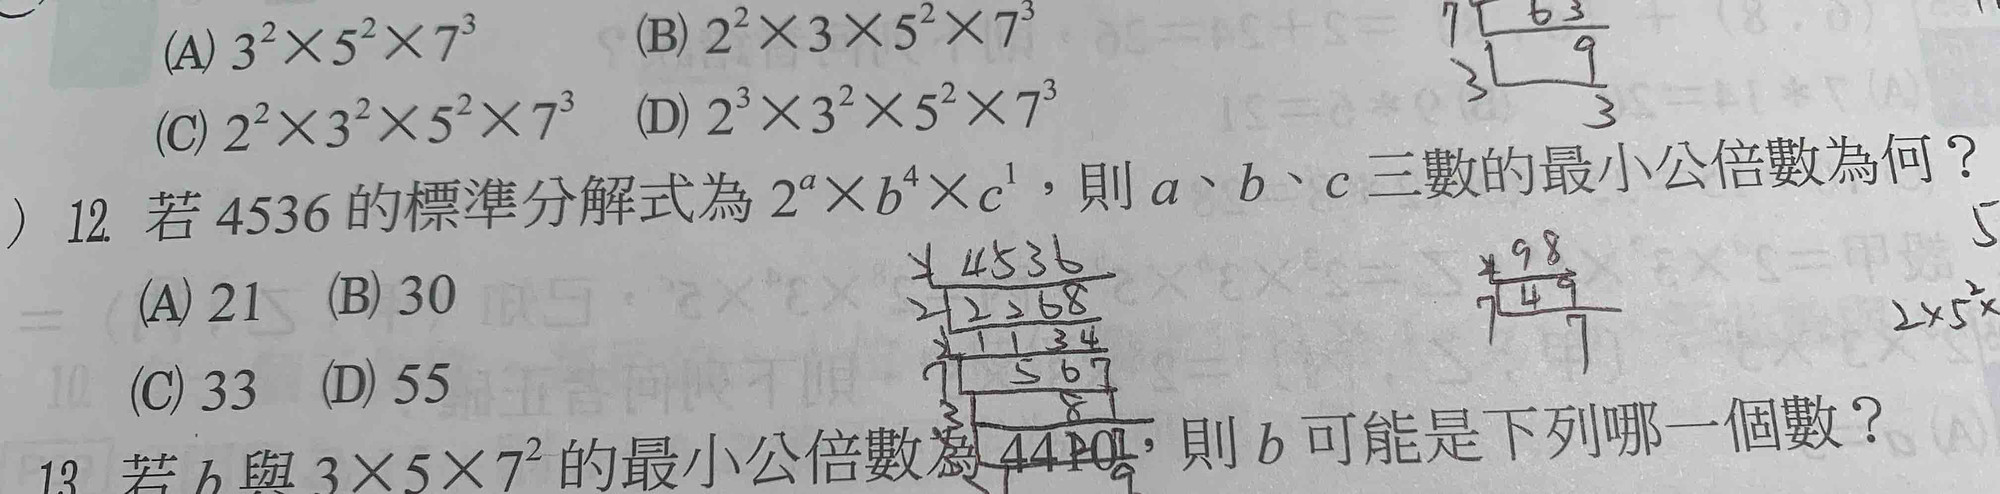 (A) 3²×5²×7³ (B) 2²×3×5²×7³
(C) 2²×3²×5²×7³ (D) 2³×3²×5²×7³
7 63
3 9
3
) 12. 若 4536 的標準分解式為 2ᵃ×b⁴×c¹，則 a、b、c 三數的最小公倍數為何？
(A) 21 (B) 30
(C) 33 (D) 55
2 4536
2 2268
2 1134
7 567
3 81
2 98
7 49
7
5
2×5²×
13. 若 b 與 3×5×7² 的最小公倍數為 4410，則 b 可能是下列哪一個數？